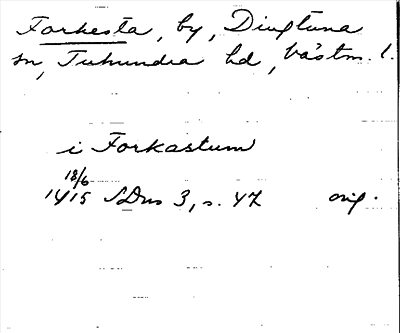 Forkesta, by, Dingtuna
sn, Tuhundra hd, Västm. l.
i Forkastum
18/6
1415 SDns 3, s. 47 orig.